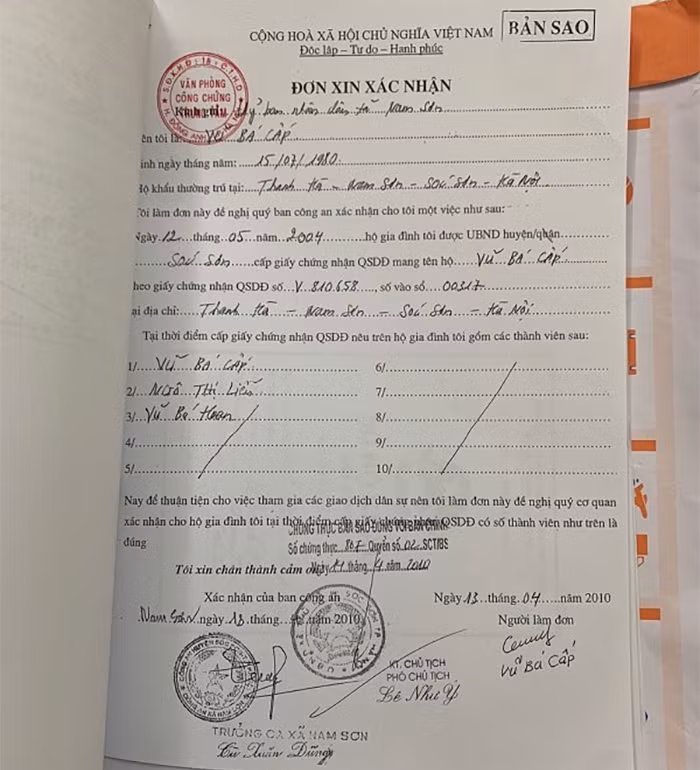 CỘNG HOÀ XÃ HỘI CHỦ NGHĨA VIỆT NAM
BẢN SAO
Độc lập – Tự do – Hạnh phúc
VĂN PHÒNG
CÔNG CHỨNG
ĐƠN XIN XÁC NHẬN
Kính gửi: Uỷ ban nhân dân xã Nam Sơn
ên tôi là: VŨ BÁ CẤP
inh ngày tháng năm: 15/07/1980
ộ khẩu thường trú tại: Thanh Hà – Nam Sơn – Sóc Sơn – Hà Nội
Tôi làm đơn này đề nghị quý ban công an xác nhận cho tôi một việc như sau:
Ngày 12 tháng 05 năm 2004 hộ gia đình tôi được UBND huyện/quận
Sóc Sơn cấp giấy chứng nhận QSDĐ mang tên hộ VŨ BÁ CẤP
heo giấy chứng nhận QSDĐ số V 810658, số vào sổ 00317
ại địa chỉ: Thanh Hà – Nam Sơn – Sóc Sơn – Hà Nội
Tại thời điểm cấp giấy chứng nhận QSDĐ nêu trên hộ gia đình tôi gồm các thành viên sau:
1/ VŨ BÁ CẤP 6/
2/ NGÔ THỊ Liễu 7/
3/ Vũ Bá Hoan 8/
4/ 9/
5/ 10/
Nay để thuận tiện cho việc tham gia các giao dịch dân sự nên tôi làm đơn này đề nghị quý cơ quan
xác nhận cho hộ gia đình tôi tại thời điểm cấp giấy chứng nhận QSDĐ có số thành viên như trên là
CHỨNG THỰC BẢN SAO ĐÚNG VỚI BẢN CHÍNH
đúng
Số chứng thực 867 Quyển số 02 SCT/BS
Tôi xin chân thành cảm ơn!
Ngày 14 tháng 4 năm 2010
Xác nhận của ban công an
Ngày 13 tháng 04 năm 2010
Nam Sơn ngày 13 tháng năm 2010
Người làm đơn
Vũ Bá Cấp
KT. CHỦ TỊCH
PHÓ CHỦ TỊCH
Lê Như Ý
TRƯỞNG CA XÃ NAM SƠN
Xuân Dũng